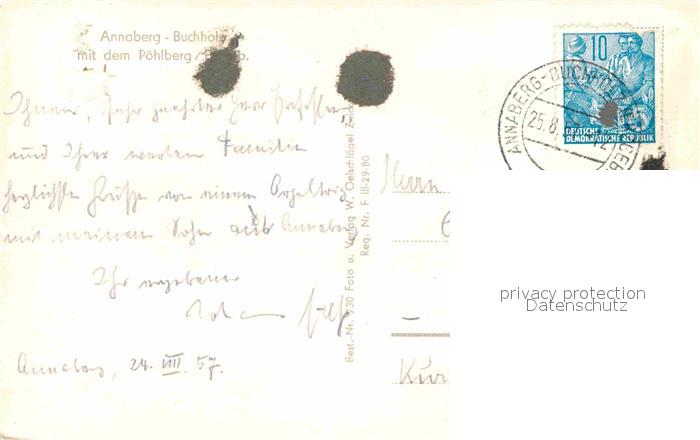 Annaberg - Buchholz
mit dem Pöhlberg
Ihnen, sehr geehrter Herr
und Ihrer werten Familie
herzlichste Grüße von einem
mit meinem Sohn aus Annaberg
Ihr ergebener
Annaberg, 24. VIII. 57.
Best.-Nr. 930 Foto u. Verlag W. Oelschlägel
Reg. Nr. F III-29-80
Herrn
10
DEUTSCHE
DEMOKRATISCHE REPUBLIK
ANNABERG-BUCHHOLZ
25.8.
privacy protection
Datenschutz